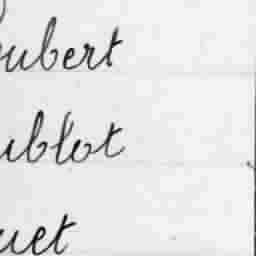 ubert
ublot
uet